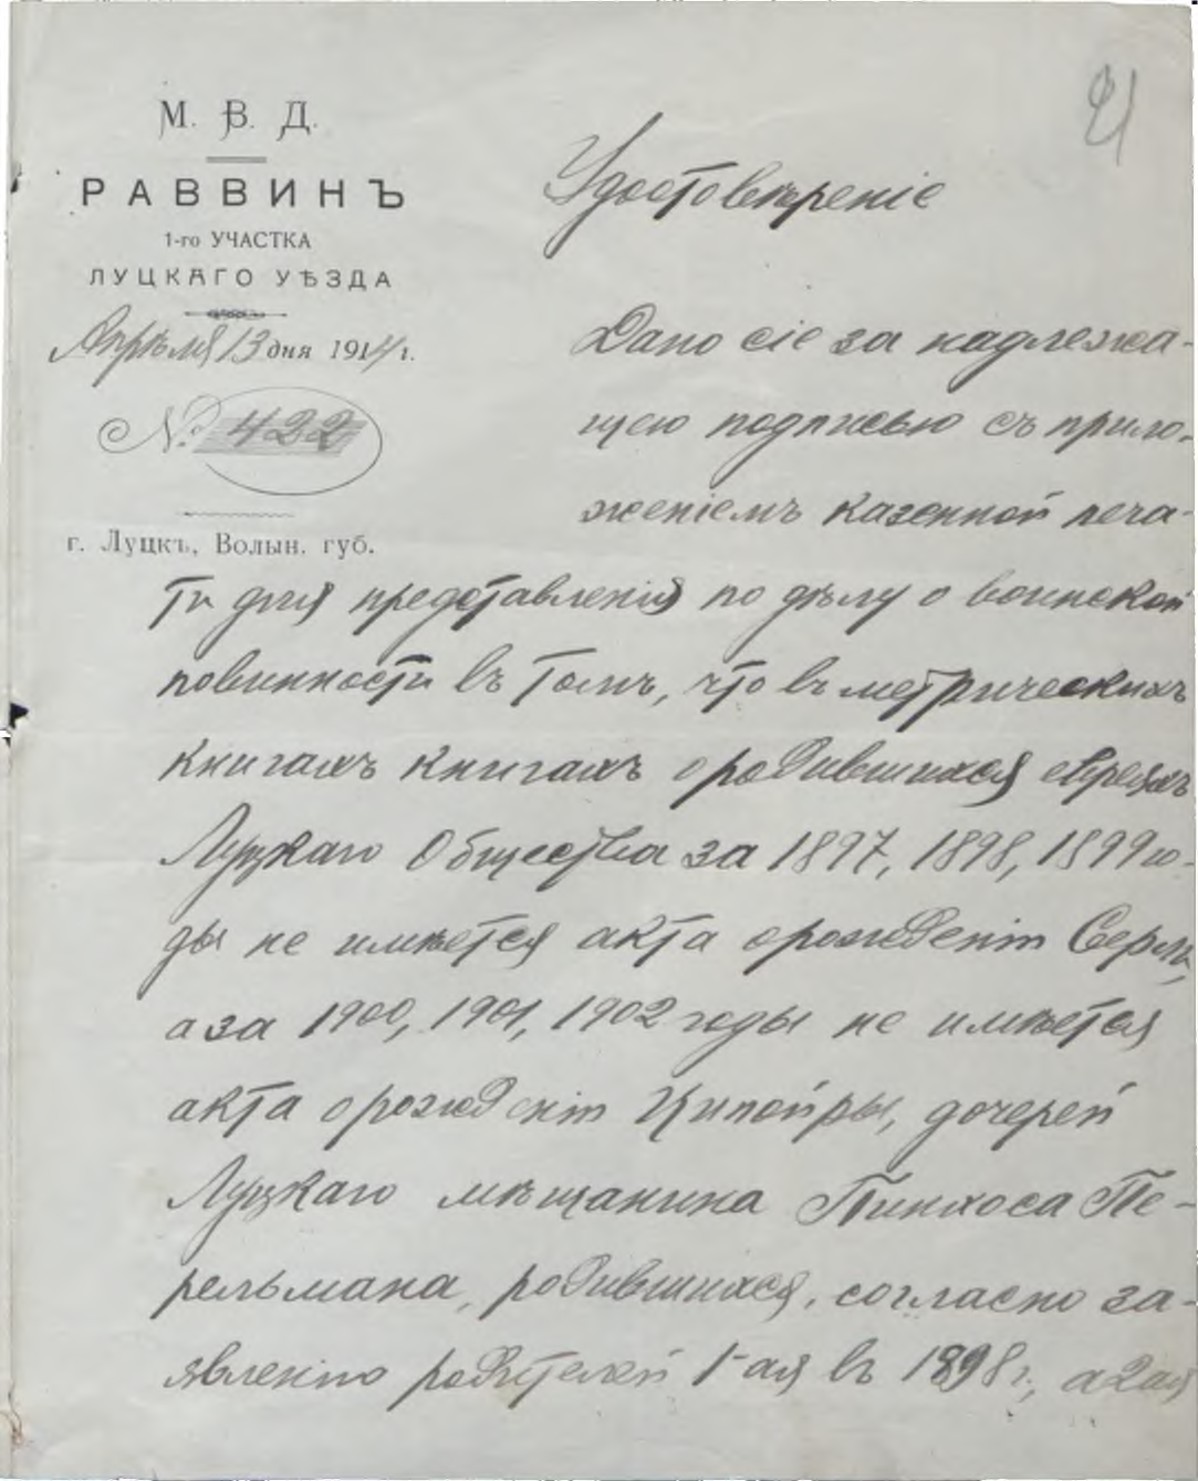 21
М. В. Д.
РАВВИНЪ
1-го УЧАСТКА
ЛУЦКАГО УѢЗДА
Апрѣля 13 дня 1914 г.
№ 422
г. Луцкъ, Волын. губ.
Удостовѣреніе
Дано сіе за надлежа-
щею подписью съ прило-
женіемъ казенной печа-
ти для представленія по дѣлу о воинской
повинности въ томъ, что въ метрическихъ
книгахъ книгахъ о родившихся евреяхъ
Луцкаго Общества за 1897, 1898, 1899 го-
ды не имѣется акта о рожденіи
а за 1900, 1901, 1902 годы не имѣется
акта о рожденіи Ципойры, дочерей
Луцкаго мѣщанина Пинхоса Пе-
рельмана, родившихся, согласно за-
явленію родителей 1-ая въ 1898 г., а 2ая